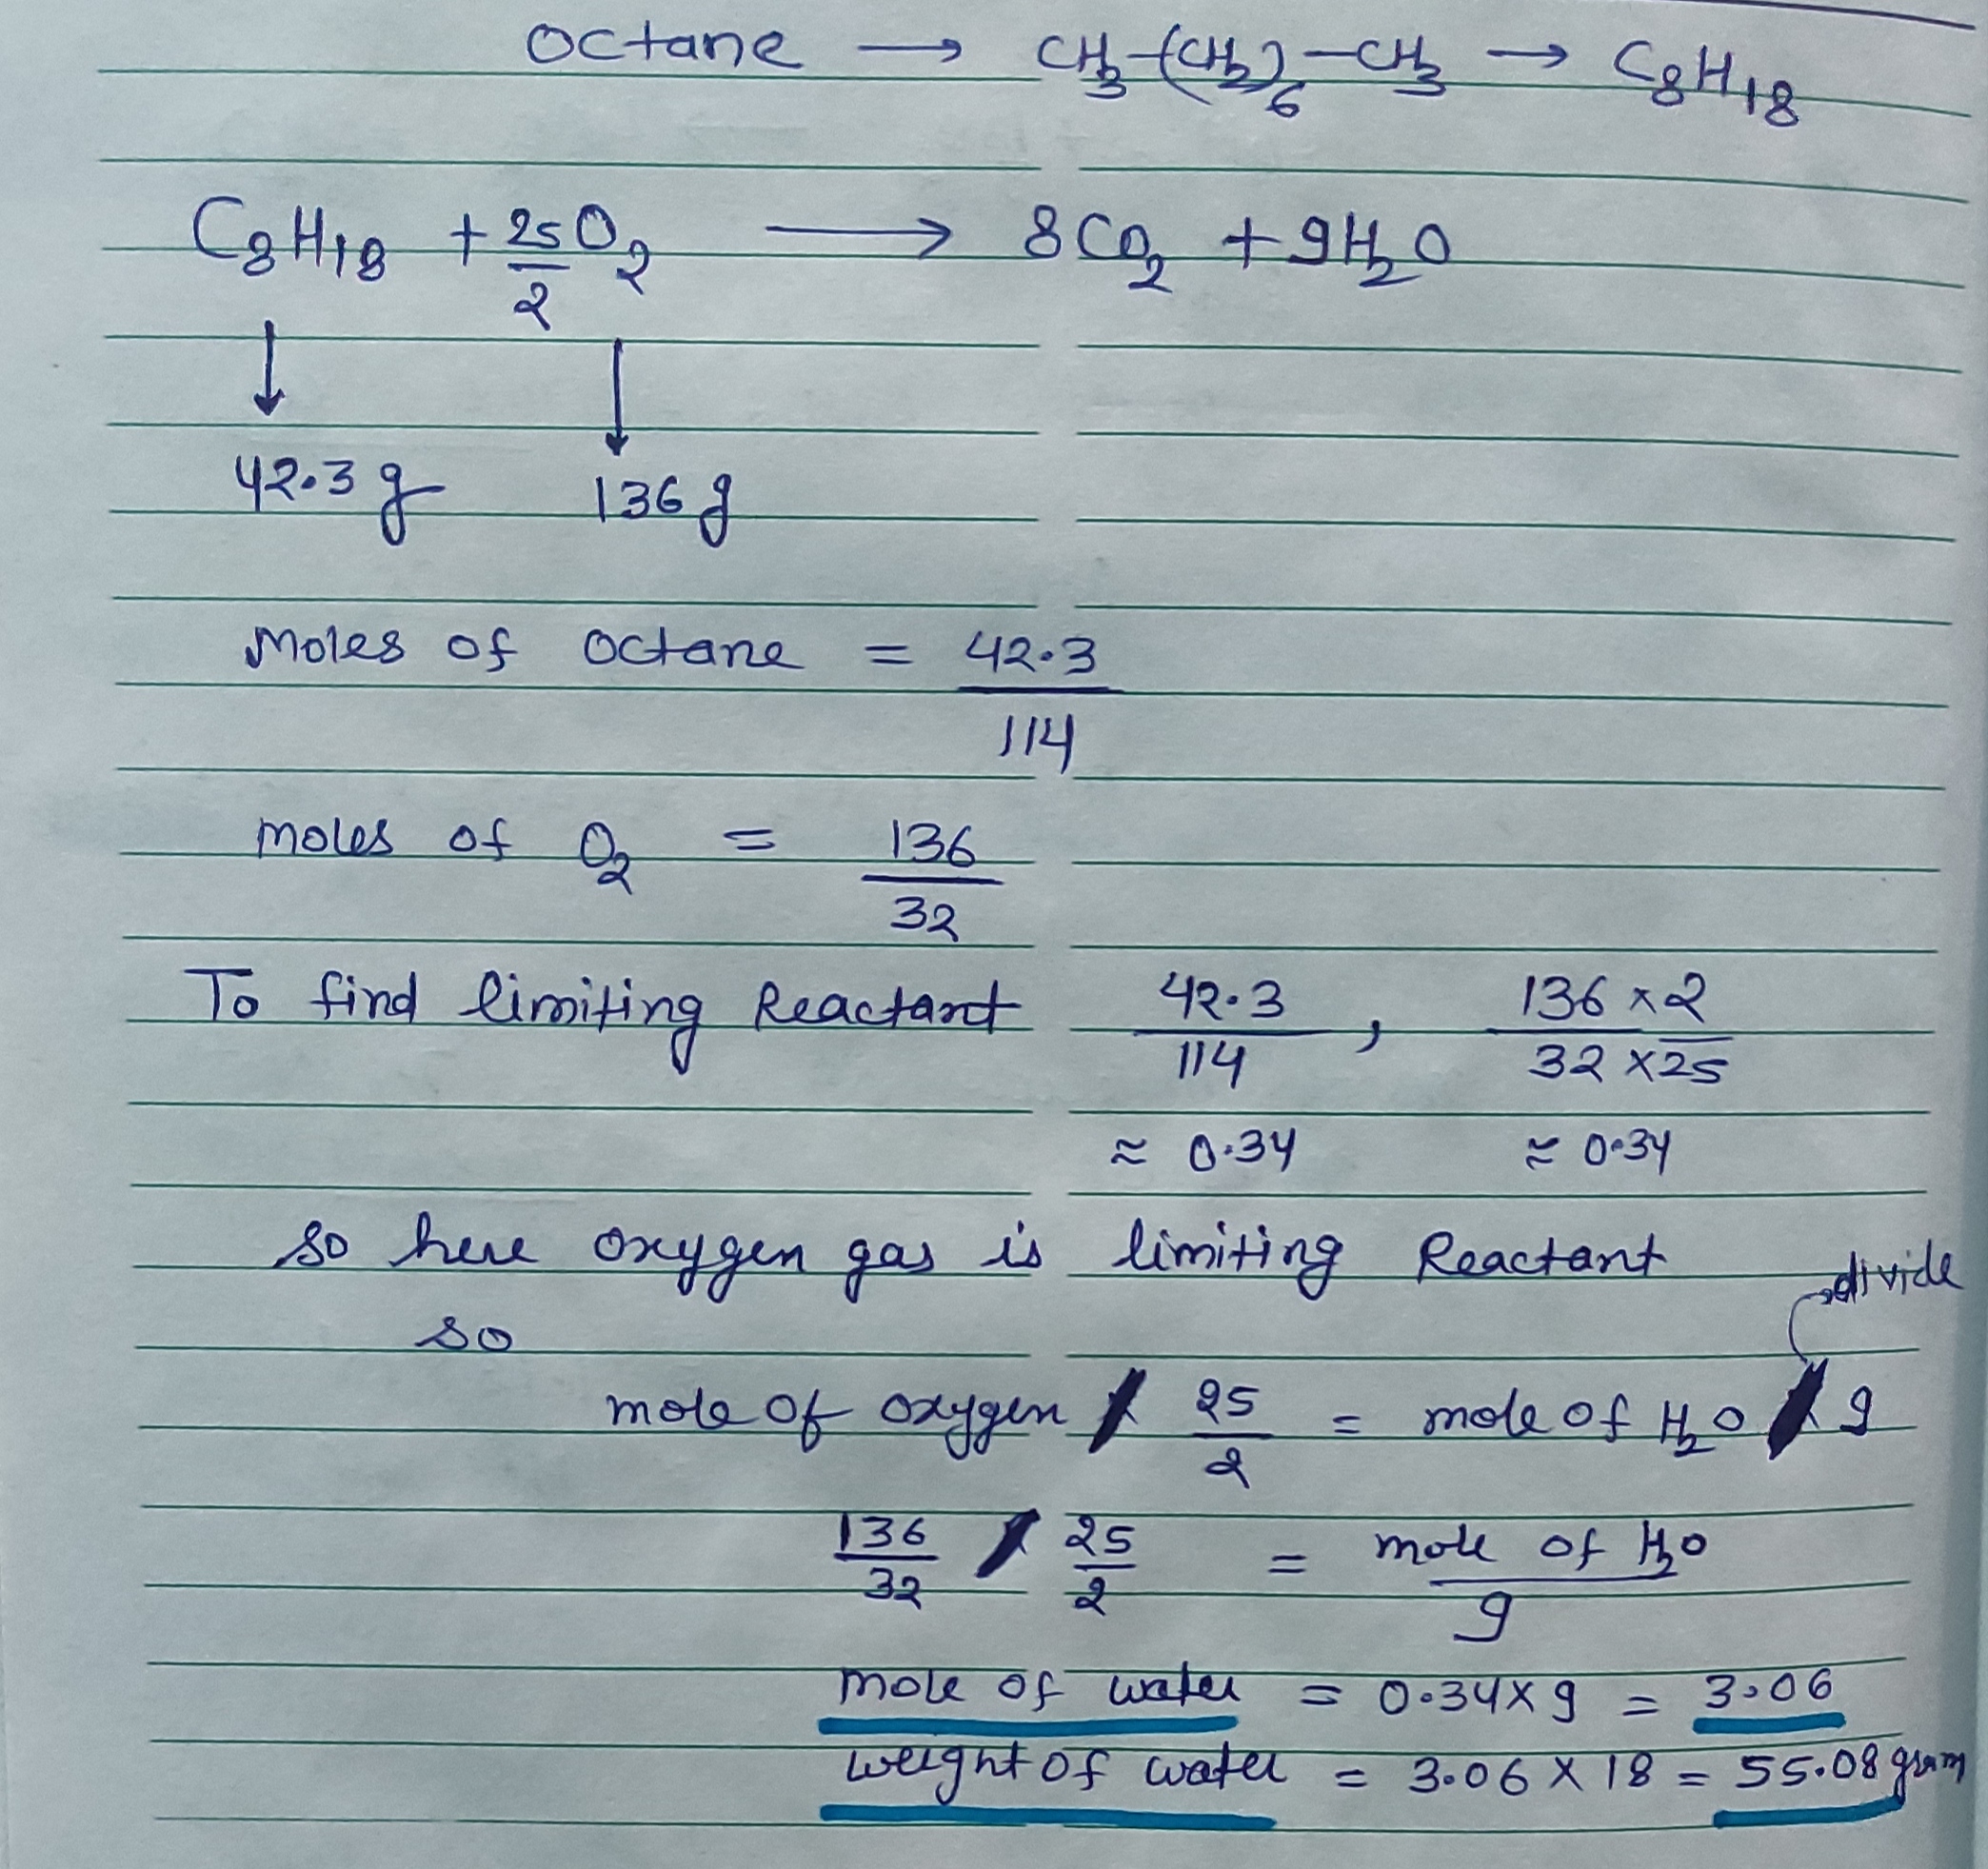 Octane → CH3-(CH2)6-CH3 → C8H18
C8H18 + 25/2 O2 → 8CO2 + 9H2O
↓ ↓
42.3 g 136 g
Moles of octane = 42.3/114
moles of O2 = 136/32
To find limiting Reactant 42.3/114 , 136×2/32×25
≈ 0.34 ≈ 0.34
so here oxygen gas is limiting Reactant
divide
so
mole of oxygen / 25/2 = mole of H2O / 9
136/32 / 25/2 = mole of H2O/9
mole of water = 0.34×9 = 3.06
weight of water = 3.06 × 18 = 55.08 gram